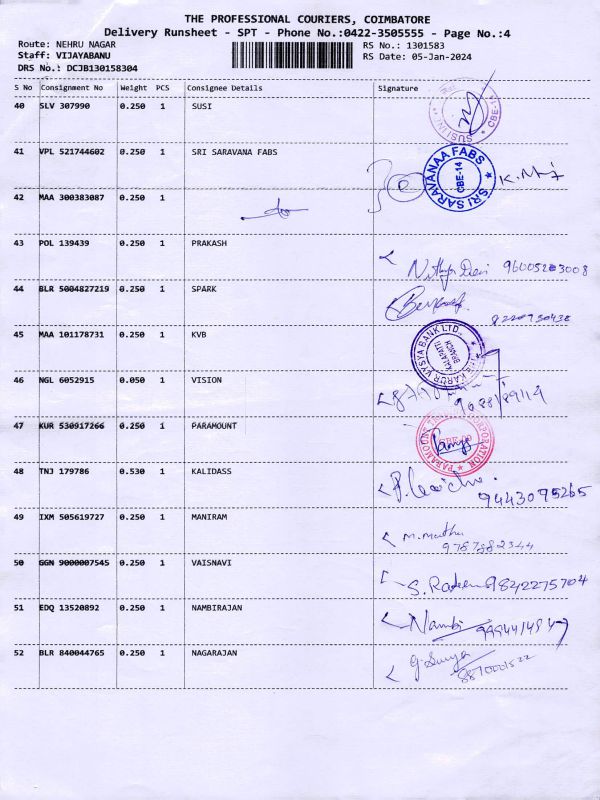 THE PROFESSIONAL COURIERS, COIMBATORE
Delivery Runsheet - SPT - Phone No.:0422-3505555 - Page No.:4
Route: NEHRU NAGAR
RS No.: 1301583
Staff: VIJAYABANU
RS Date: 05-Jan-2024
DRS No.: DCJB130158304
S No Consignment No Weight PCS Consignee Details Signature
40 SLV 307990 0.250 1 SUSI
CBE-14
41 VPL 521744602 0.250 1 SRI SARAVANA FABS
SRI SARAVANAA FABS CBE-14
42 MAA 300383087 0.250 1
43 POL 139439 0.250 1 PRAKASH
96005203008
44 BLR 5004827219 0.250 1 SPARK
45 MAA 101178731 0.250 1 KVB
THE KARUR VYSYA BANK LTD. KALAPATTI BRANCH
46 NGL 6052915 0.050 1 VISION
47 KUR 530917266 0.250 1 PARAMOUNT
48 TNJ 179786 0.530 1 KALIDASS
9443095265
49 IXM 505619727 0.250 1 MANIRAM
M. Muthu
9787882344
50 GGN 9000007545 0.250 1 VAISNAVI
9842275704
51 EDQ 13520892 0.250 1 NAMBIRAJAN
Nambi
52 BLR 840044765 0.250 1 NAGARAJAN
G. Surya
8870001522